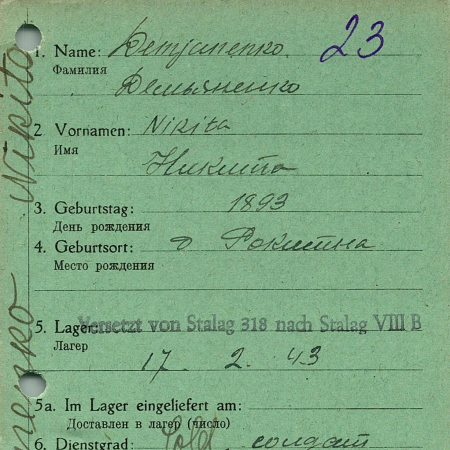 1. Name: Demjanenko
23
Фамилия
Демьяненко
2. Vornamen: Nikita
Имя
Никита
3. Geburtstag: 1893
День рождения
4. Geburtsort: д Рокитна
Место рождения
5. Lager: Versetzt von Stalag 318 nach Stalag VIII B
Лагер
17. 2. 43
5a. Im Lager eingeliefert am:
Доставлен в лагер (число)
6. Dienstgrad: Sold. солдат
Nikita